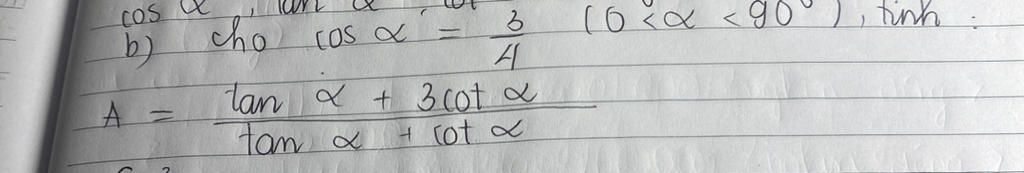 cos α, tan α,
b) cho cos α = 3/4 (0 < α < 90°), tính :
A = (tan α + 3cot α)/(tan α + cot α)